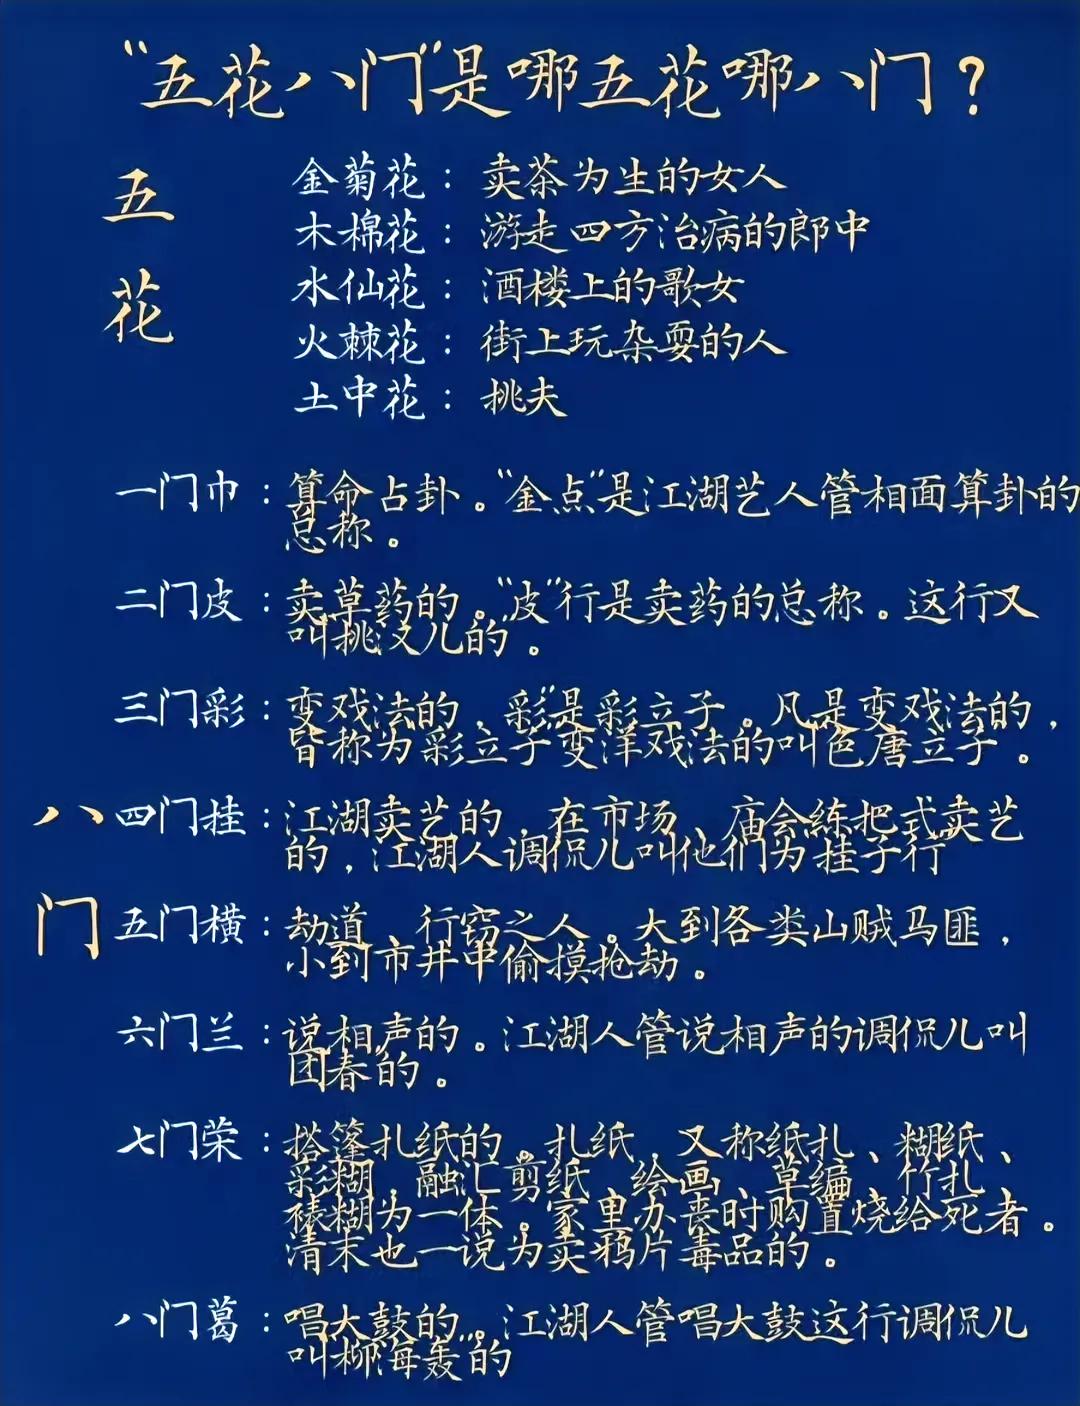 “五花八门”是哪五花哪八门？
五花
金菊花：卖茶为生的女人
木棉花：游走四方治病的郎中
水仙花：酒楼上的歌女
火棘花：街上玩杂耍的人
土中花：挑夫
八门
一门巾：算命占卦。“金点”是江湖艺人管相面算卦的
总称。
二门皮：卖草药的。“皮”行是卖药的总称。这行又
叫挑汉儿的”。
三门彩：变戏法的，彩”是彩立子。凡是变戏法的，
皆称为彩立子变洋戏法的叫色唐立子”。
四门挂：江湖卖艺的，在市场、庙会练把式卖艺
的，江湖人调侃儿叫他们为挂子行
五门横：劫道、行窃之人。大到各类山贼马匪，
小到市井中偷摸抢劫。
六门兰：说相声的。江湖人管说相声的调侃儿叫
团春”的。
七门荣：搭篷扎纸的。扎纸，又称纸扎、糊纸、
彩糊，融汇剪纸、绘画、草编、竹扎、
裱糊为一体。家里办丧时购置烧给死者。
清末也一说为卖鸦片毒品的。
八门葛：唱大鼓的。江湖人管唱大鼓这行调侃儿
叫柳海轰”的